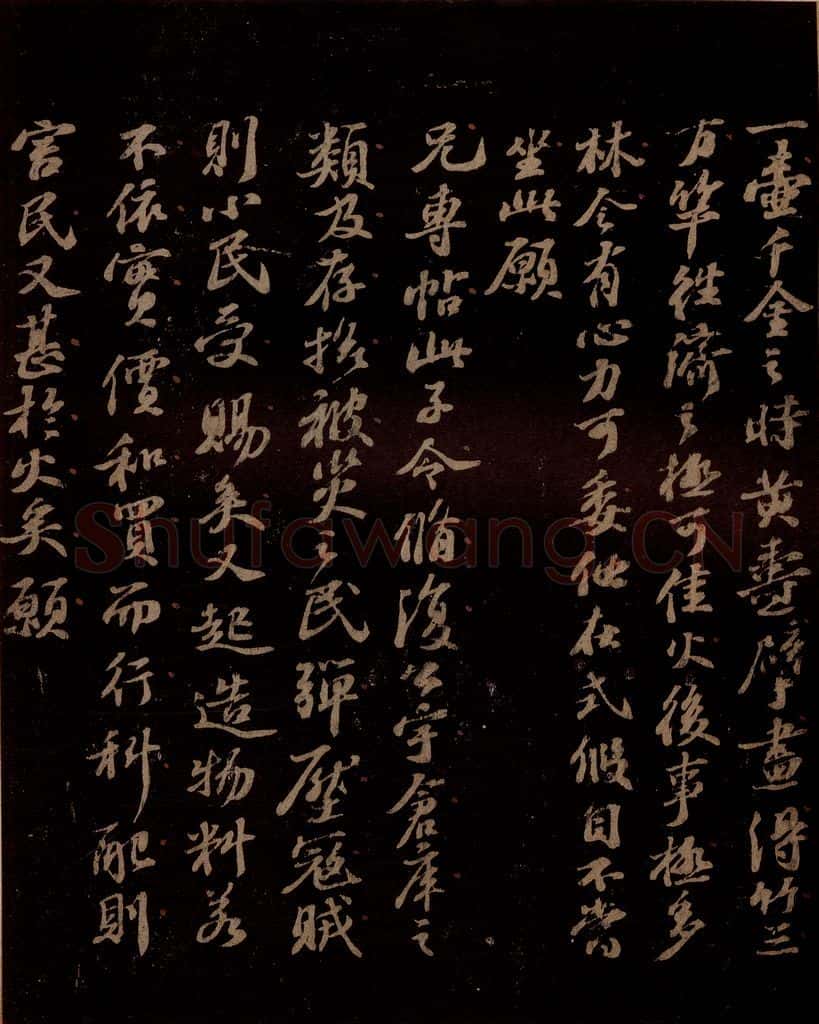 一壺千金之時黃燾擘畫得竹三
万竿往濟之極可佳火後事極多
林令有心力可委他在式假自不當
坐此願
兄專帖此子令脩復公宇倉庫之
類及存撫被災之民彈壓寇賊
則小民受賜矣又起造物料若
不依實價和買而行科配則
害民又甚於火矣願
Shufawang.CN